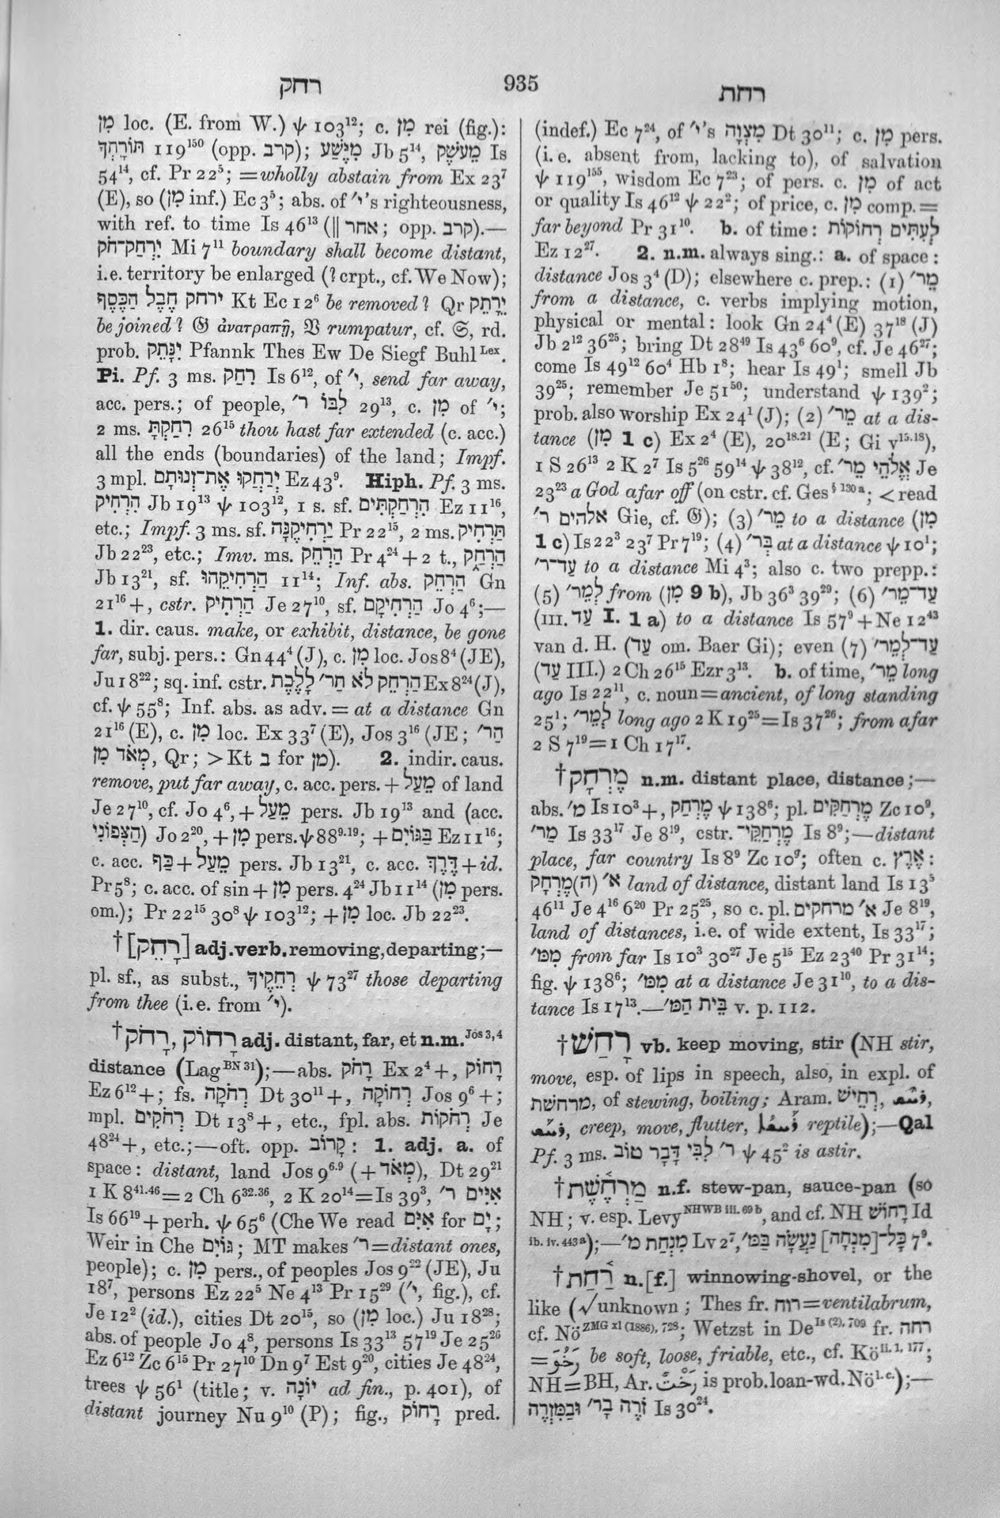 רחק
935
רחת
מִן loc. (E. from W.) ψ 103¹²; c. מִן rei (fig.):
תּוֹרָתְךָ 119¹⁵⁰ (opp. קרב); מִיֶּשַׁע Jb 5⁴, מֵעשֶׁק Is
54¹⁴, cf. Pr 22⁵; =wholly abstain from Ex 23⁷
(E), so (מִן inf.) Ec 3⁵; abs. of י״'s righteousness,
with ref. to time Is 46¹³ (‖ אחר; opp. קרב).—
יִרְחַק־חֹק Mi 7¹¹ boundary shall become distant,
i.e. territory be enlarged (? crpt., cf. We Now);
ירחק חֶבֶל הַכֶּסֶף Kt Ec 12⁶ be removed? Qr יֵרָתֵק
be joined? 𝔊 ἀνατραπῇ, 𝔙 rumpatur, cf. 𝔖, rd.
prob. יִנָּתֵק Pfannk Thes Ew De Siegf Buhl Lex.
Pi. Pf. 3 ms. רִחַק Is 6¹², of י״, send far away,
acc. pers.; of people, לִבּוֹ ר׳ 29¹³, c. מִן of י״;
2 ms. רִחַקְתָּ 26¹⁵ thou hast far extended (c. acc.)
all the ends (boundaries) of the land; Impf.
3 mpl. יְרַחֲקוּ אֶת־זְנוּתָם Ez 43⁹. Hiph. Pf. 3 ms.
הִרְחִיק Jb 19¹³ ψ 103¹², 1 s. sf. הִרְחַקְתִּים Ez 11¹⁶,
etc.; Impf. 3 ms. sf. יַרְחִיקֶנָּה Pr 22¹⁵, 2 ms. תַּרְחִיק
Jb 22²³, etc.; Imv. ms. הַרְחֵק Pr 4²⁴ + 2 t., הַרְחַק
Jb 13²¹, sf. הַרְחִיקֵהוּ 11¹⁴; Inf. abs. הַרְחֵק Gn
21¹⁶ +, cstr. הַרְחִיק Je 27¹⁰, sf. הַרְחִיקָם Jo 4⁶;—
1. dir. caus. make, or exhibit, distance, be gone
far, subj. pers.: Gn 44⁴ (J), c. מִן loc. Jos 8⁴ (JE),
Ju 18²²; sq. inf. cstr. הַרְחֵק לֹא תַר׳ לָלֶכֶת Ex 8²⁴ (J),
cf. ψ 55⁸; Inf. abs. as adv. = at a distance Gn
21¹⁶ (E), c. מִן loc. Ex 33⁷ (E), Jos 3¹⁶ (JE; הַר׳
מְאֹד מִן, Qr; > Kt ב for מִן). 2. indir. caus.
remove, put far away, c. acc. pers. + מֵעַל of land
Je 27¹⁰, cf. Jo 4⁶, + מֵעַל pers. Jb 19¹³ and (acc.
הַצְּפוֹנִי) Jo 2²⁰, + מִן pers. ψ 88⁹·¹⁹; + בַּגּוֹיִם Ez 11¹⁶;
c. acc. כַּף + מֵעַל pers. Jb 13²¹, c. acc. דֶּרֶךְ + id.
Pr 5⁸; c. acc. of sin + מִן pers. 4²⁴ Jb 11¹⁴ (מִן pers.
om.); Pr 22¹⁵ 30⁸ ψ 103¹²; + מִן loc. Jb 22²³.
†[רָחֵק] adj. verb. removing, departing;—
pl. sf., as subst., רְחֵקֶיךָ ψ 73²⁷ those departing
from thee (i.e. from י״).
†רָחוֹק, רָחֹק adj. distant, far, et n.m. Jos 3, 4
distance (Lag BN 31);—abs. רָחֹק Ex 2⁴ +, רָחוֹק
Ez 6¹² +; fs. רְחֹקָה Dt 30¹¹ +, רְחוֹקָה Jos 9⁶ +;
mpl. רְחֹקִים Dt 13⁸ +, etc., fpl. abs. רְחֹקוֹת Je
48²⁴ +, etc.;—oft. opp. קָרוֹב: 1. adj. a. of
space: distant, land Jos 9⁶·⁹ (+ מְאֹד), Dt 29²¹
1 K 8⁴¹·⁴⁶ = 2 Ch 6³²·³⁶, 2 K 20¹⁴ = Is 39³, אִיִּים ר׳
Is 66¹⁹ + perh. ψ 65⁶ (Che We read אִיִּם for יָם;
Weir in Che גּוֹיִם; MT makes ר׳ = distant ones,
people); c. מִן pers., of peoples Jos 9²² (JE), Ju
18⁷, persons Ez 22⁵ Ne 4¹³ Pr 15²⁹ (י״, fig.), cf.
Je 12² (id.), cities Dt 20¹⁵, so (מִן loc.) Ju 18²⁸;
abs. of people Jo 4⁸, persons Is 33¹³ 57¹⁹ Je 25²⁶
Ez 6¹² Zc 6¹⁵ Pr 27¹⁰ Dn 9⁷ Est 9²⁰, cities Je 48²⁴,
trees ψ 56¹ (title; v. יוֹנָה ad fin., p. 401), of
distant journey Nu 9¹⁰ (P); fig., רָחוֹק pred.
(indef.) Ec 7²⁴, of י״'s מִצְוָה Dt 30¹¹; c. מִן pers.
(i.e. absent from, lacking to), of salvation
ψ 119¹⁵⁵, wisdom Ec 7²³; of pers. c. מִן of act
or quality Is 46¹² ψ 22²; of price, c. מִן comp. =
far beyond Pr 31¹⁰. b. of time: לְעִתִּים רְחוֹקוֹת
Ez 12²⁷. 2. n.m. always sing.: a. of space:
distance Jos 3⁴ (D); elsewhere c. prep.: (1) מֵר׳
from a distance, c. verbs implying motion,
physical or mental: look Gn 24⁴ (E) 37¹⁸ (J)
Jb 2¹² 36²⁵; bring Dt 28⁴⁹ Is 43⁶ 60⁹, cf. Je 46²⁷;
come Is 49¹² 60⁴ Hb 1⁸; hear Is 49¹; smell Jb
39²⁵; remember Je 51⁵⁰; understand ψ 139²;
prob. also worship Ex 24¹ (J); (2) מֵר׳ at a dis-
tance (מִן 1 c) Ex 2⁴ (E), 20¹⁸·²¹ (E; Gi v¹⁵·¹⁸),
1 S 26¹³ 2 K 2⁷ Is 5²⁶ 59¹⁴ ψ 38¹², cf. אֱלֹהֵי מֵר׳ Je
23²³ a God afar off (on cstr. cf. Ges § 130 a; < read
אלהים ר׳ Gie, cf. 𝔊); (3) מֵר׳ to a distance (מִן
1 c) Is 22³ 23⁷ Pr 7¹⁹; (4) בְּר׳ at a distance ψ 10¹;
עַד־ר׳ to a distance Mi 4³; also c. two prepp.:
(5) לְמֵר׳ from (מִן 9 b), Jb 36³ 39²⁹; (6) עַד־מֵר׳
(III. עַד I. 1 a) to a distance Is 57⁹ + Ne 12⁴³
van d. H. (עַד om. Baer Gi); even (7) עַד־לְמֵר׳
(עַד III.) 2 Ch 26¹⁵ Ezr 3¹³. b. of time, מֵר׳ long
ago Is 22¹¹, c. noun = ancient, of long standing
25¹; לְמֵר׳ long ago 2 K 19²⁵ = Is 37²⁶; from afar
2 S 7¹⁹ = 1 Ch 17¹⁷.
†מֶרְחָק n.m. distant place, distance;—
abs. מ׳ Is 10³ +, מֶרְחַק ψ 138⁶; pl. מֶרְחַקִּים Zc 10⁹,
מַר׳ Is 33¹⁷ Je 8¹⁹, cstr. מֶרְחַקֵּי־ Is 8⁹;—distant
place, far country Is 8⁹ Zc 10⁹; often c. אֶרֶץ:
א׳ (הַ)מֶּרְחָק land of distance, distant land Is 13⁵
46¹¹ Je 4¹⁶ 6²⁰ Pr 25²⁵, so c. pl. א׳ מרחקים Je 8¹⁹,
land of distances, i.e. of wide extent, Is 33¹⁷;
מִמּ׳ from far Is 10³ 30²⁷ Je 5¹⁵ Ez 23⁴⁰ Pr 31¹⁴;
fig. ψ 138⁶; מִמּ׳ at a distance Je 31¹⁰, to a dis-
tance Is 17¹³.—בֵּית הַמּ׳ v. p. 112.
†רָחַשׁ vb. keep moving, stir (NH stir,
move, esp. of lips in speech, also, in expl. of
מרחשת, of stewing, boiling; Aram. רְחֵישׁ,
creep, move, flutter, reptile);—Qal
Pf. 3 ms. ר׳ לִבִּי דָּבָר טוֹב ψ 45² is astir.
†מַרְחֶ֫שֶׁת n.f. stew-pan, sauce-pan (so
NH; v. esp. Levy NHWB iii. 69 b, and cf. NH רָחוֹשׁ Id
ib. iv. 443 a);—מִנְחַת מ׳ Lv 2⁷, כָּל־[מִנְחָה] נַעֲשָׂה בַמּ׳ 7⁹.
†רַ֫חַת n.[f.] winnowing-shovel, or the
like (√ unknown; Thes fr. רוח = ventilabrum,
cf. Nö ZMG xl (1886), 723; Wetzst in De Is (2), 709 fr. רחח
= be soft, loose, friable, etc., cf. Kö ii. 1, 177;
NH = BH, Ar. is prob. loan-wd. Nö l.c.);—
זֹרֶה בָר׳ וּבַמִּזְרֶה Is 30²⁴.